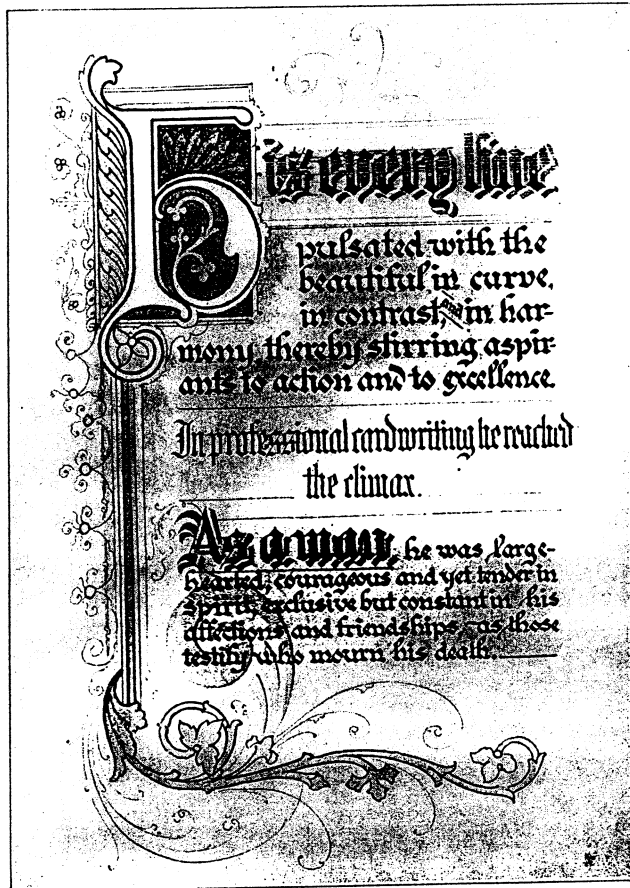 His every line
pulsated with the
beautiful in curve,
in contrast, and in har-
mony thereby stirring aspir-
ants to action and to excellence.
In professional cardwriting he reached
the climax.
As a man, he was large-
hearted, courageous and yet tender in
spirit, exclusive but constant in his
affections and friendships, as those
testify who mourn his death.